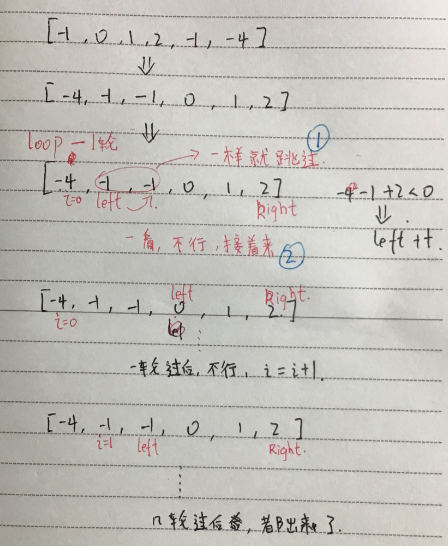 [-1, 0, 1, 2, -1, -4]
⇓
[-4, -1, -1, 0, 1, 2]
⇓
loop 一1轮
→ 一样就跳过. ①
[-4, -1, -1, 0, 1, 2]
i=0 left Right
-4-1+2<0
⇓
left++.
一看, 不行, 接着来 ②
left Right.
[-4, -1, -1, 0, 1, 2]
i=0
一轮过后, 不行, i=i+1.
[-4, -1, -1, 0, 1, 2]
i=1 left Right.
n轮过后, 都出来了.